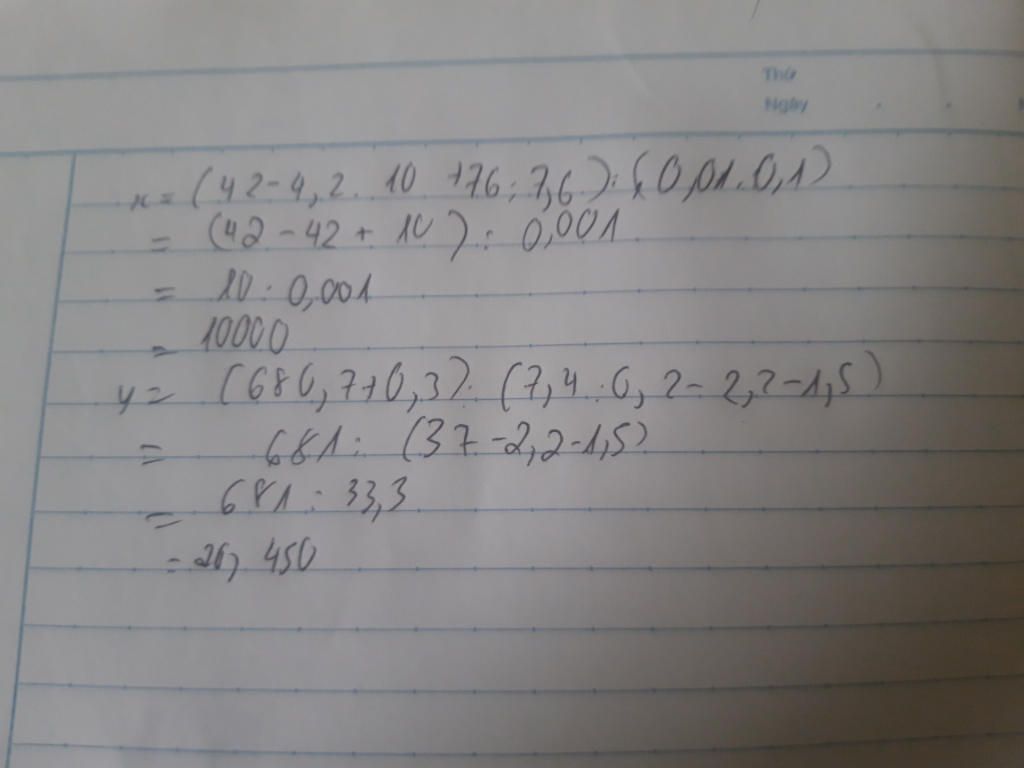 Thứ
Ngày
x = (42 - 4,2 . 10 + 76 : 7,6) : (0,01 . 0,1)
= (42 - 42 + 10) : 0,001
= 10 : 0,001
= 10000
y = (680,7 + 0,3) : (7,4 : 0,2 - 2,2 - 1,5)
= 681 : (37 - 2,2 - 1,5)
= 681 : 33,3
= 20,450